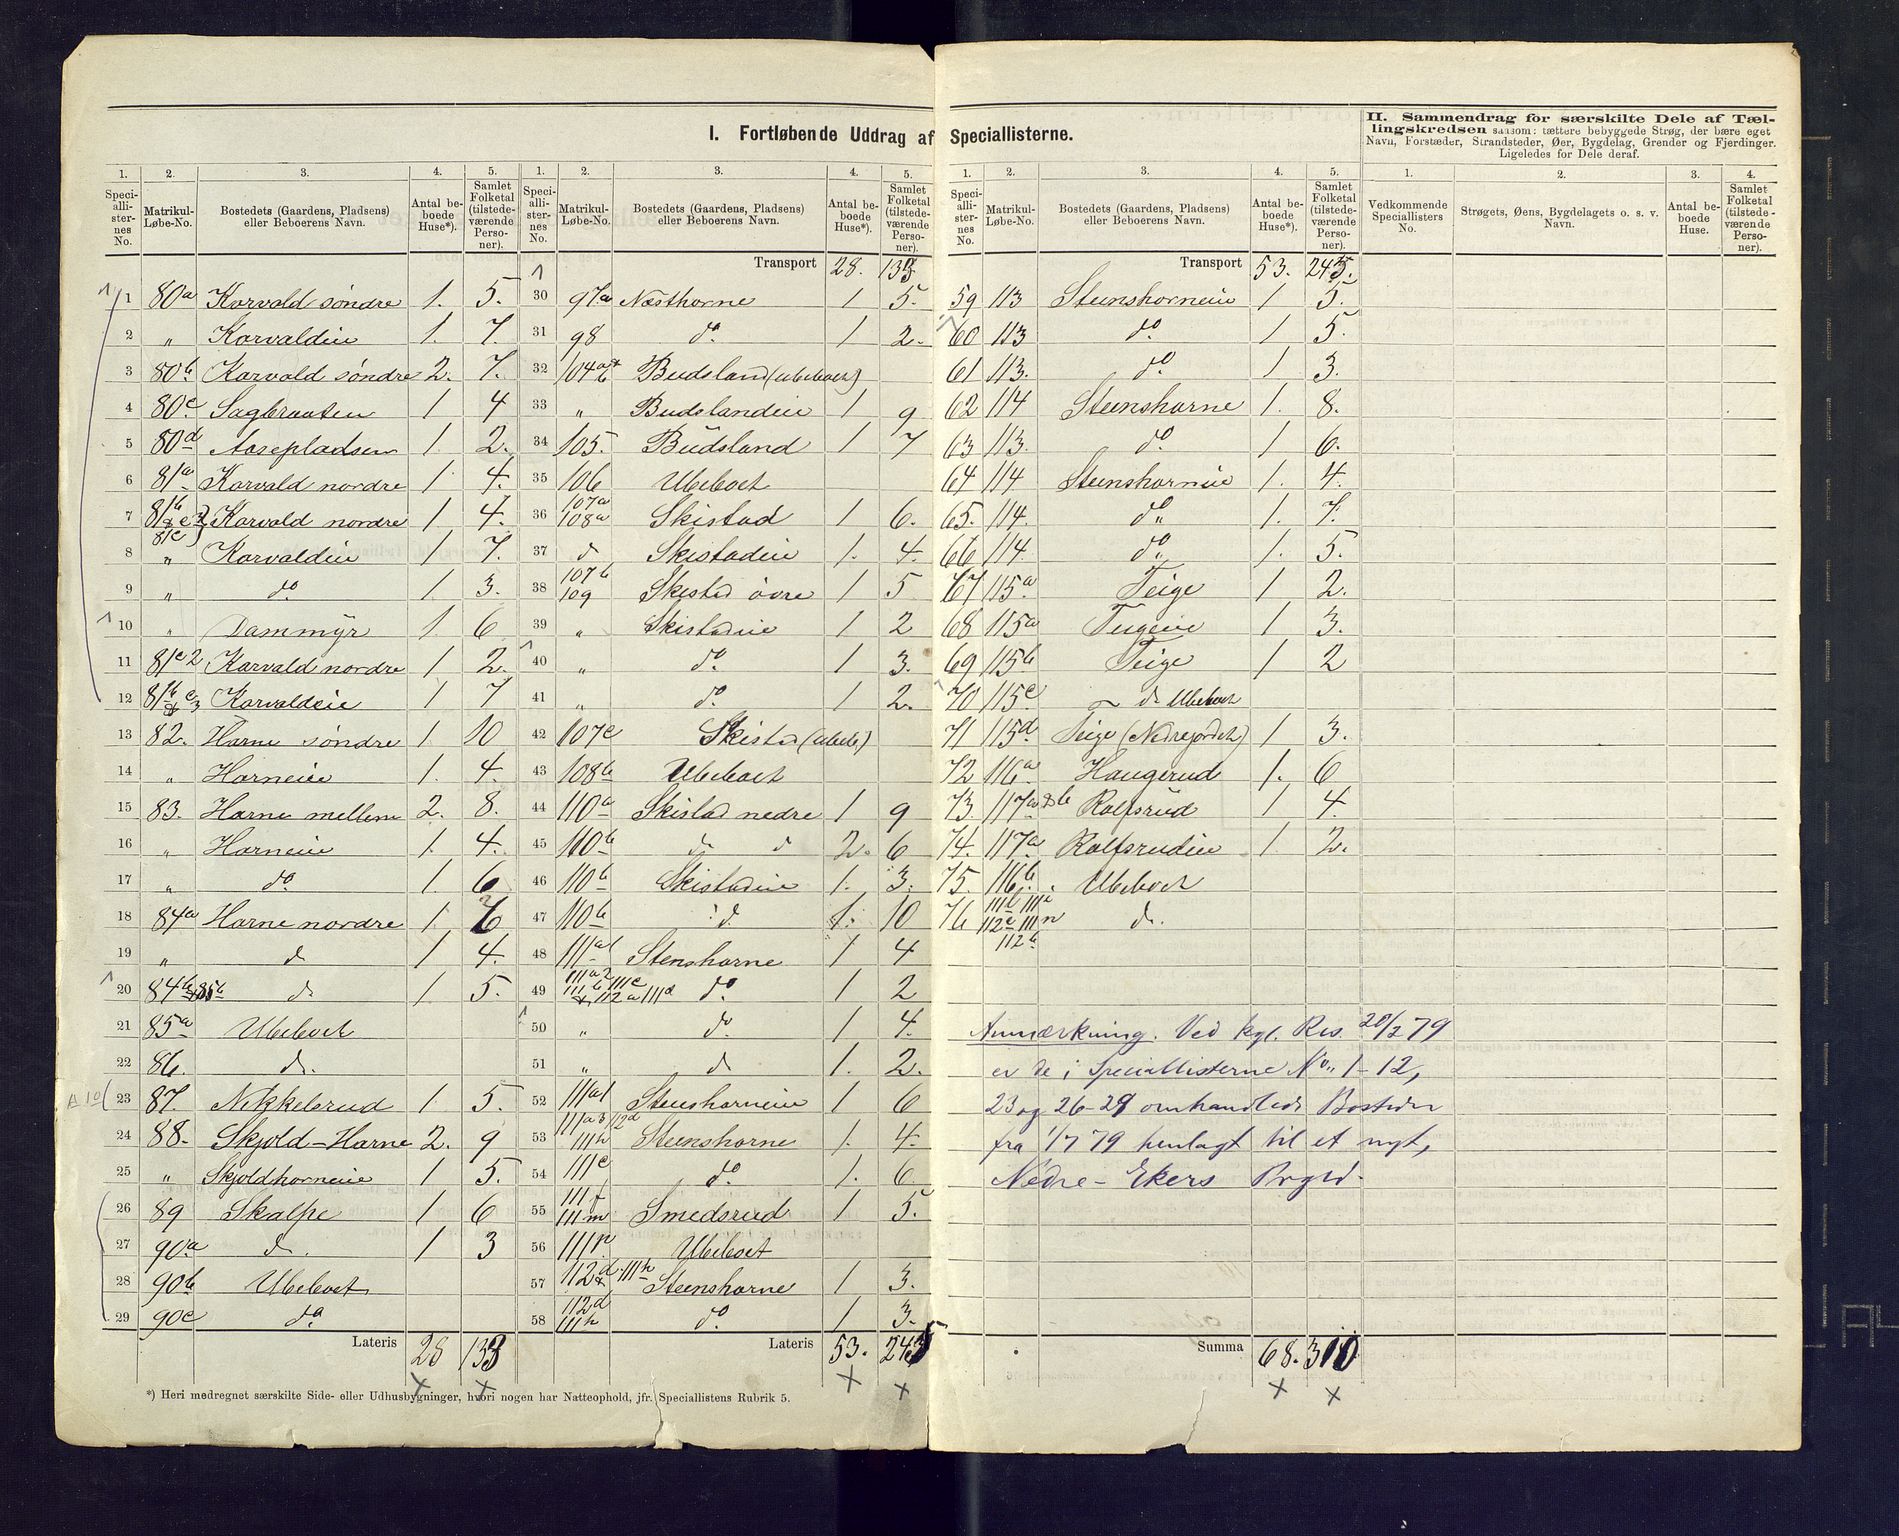 I. Fortløbende Uddrag af Speciallisterne.
II. Sammendrag for særskilte Dele af Tæl-
lingskredsen saasom: tættere bebyggede Strøg, der bære eget
Navn, Forstæder, Strandsteder, Øer, Bygdelag, Grender og Fjerdinger.
Ligeledes for Dele deraf.
1. 2. 3. 4. 5.
Speciallisternes No. Matrikul-Løbe-No. Bostedets (Gaardens, Pladsens) eller Beboerens Navn. Antal beboede Huse*). Samlet Folketal (tilstedeværende Personer).
1 80a Korvald søndre 1. 5.
2 „ Korvaldeie 1. 7.
3 80b Korvald søndre 2. 7.
4 80c Sagbraaten 1 4
5 80d Aasepladsen 1 2.
6 81a Korvald nordre 1 4.
7 81b Korvald nordre 1 4.
8 „ Korvaldeie 1 7.
9 „ do 1 3.
10 „ Dammyr 1 6
11 81c2 Korvald nordre 1 2.
12 81b Korvaldeie 1 7
13 82. Horne søndre 1. 10
14 „ Horneie 1. 4.
15 83. Horne mellem 2. 8.
16 „ Horneie 1. 4.
17 „ do 1. 6
18 84a Horne nordre 1.
19 „ d 1 4.
20 84b d. 1 5.
21 85a Ubeboet
22 86. d.
23 87. Nikkelsrud 1 5.
24 88. Skjold-Horne 2. 9
25 „ Skjoldhorneie 1 5.
26 89 Skalpe 1 6
27 90a d. 1 3
28 90b Ubeboet
29 90c do
Lateris 28 133
1. 2. 3. 4. 5.
Speciallisternes No. Matrikul-Løbe-No. Bostedets (Gaardens, Pladsens) eller Beboerens Navn. Antal beboede Huse*). Samlet Folketal (tilstedeværende Personer).
Transport 28. 133
30 97a Næsthorne 1 5.
31 98 do. 1 2.
32 104a+b Budsland (ubeboet)
33 „ Budslandeie 1 9
34 105. Budsland 1 7
35 106 Ubeboet
36 107a 108a Skistad 1 6.
37 d Skistadeie 1. 4.
38 107b 109 Skistad øvre 1 5
39 „ Skistadeie 1 2
40 „ do. 1 3.
41 „ do. 1 2.
42 107c Skistad (ubeb)
43 108b Ubeboet
44 110a Skistad nedre 1 9
45 110b d d 2. 6
46 110b Skistadeie 1. 3.
47 110b d 1. 10
48 111a1 Stenshorne 1 4
49 111a2 111b 111c 112a 111d do. 1 2
50 „ do 1 4.
51 „ d 1. 2.
52 111a1 Stenshorneie 1 6
53 111a3 112d 111h Steenshorne 1. 4.
54 111e do. 1. 6
55 111f 111m Smedsrud 1 5.
56 111p. Ubeboet
57 112d 111h Steenshorne 1 3.
58 112d 111h do. 1 3.
Lateris 53. 245
1. 2. 3. 4. 5.
Speciallisternes No. Matrikul-Løbe-No. Bostedets (Gaardens, Pladsens) eller Beboerens Navn. Antal beboede Huse*). Samlet Folketal (tilstedeværende Personer).
Transport 53. 245.
59 113 Steenshorneie 1 5.
60 113 do. 1 5.
61 113. do. 1 3.
62 114 Steenshorne 1. 8.
63 113. do 1 6.
64 114 Steenshorneie 1. 4.
65. 114. do„ 1. 7.
66 114. do„ 1. 5.
67 115a Teige 1 2.
68 115a Teigeie 1 3.
69 115b Teige 1 2
70 115c d. Ubeboet
71 115d Teige (Nedrejordet) 1 3.
72 116a Haugerud 1. 6
73. 117a&b Rolfsrud 1 4.
74. 117a Rolfsrudeie 1. 2.
75. 116b. Ubeboet
76 111l 111i 112c 111n 112b d.
Anmærkning. Ved kgl. Res. 20/2 79
er de i Speciallisterne No. 1-12,
23 og 26-29 omhandlede Bosteder
fra 1/7 79 henlagt til et nyt,
Nedre-Ekers Prgld.
Summa 68. 310
1. 2. 3. 4.
Vedkommende Speciallisters No. Strøgets, Øens, Bygdelagets o. s. v. Navn. Antal beboede Huse. Samlet Folketal (tilstedeværende Personer).
*) Heri medregnet særskilte Side- eller Udhusbygninger, hvori nogen har Natteophold, jfr. Speciallistens Rubrik 5.